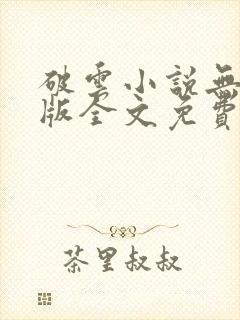 破雲小說無
版全文免費
茶里叔叔